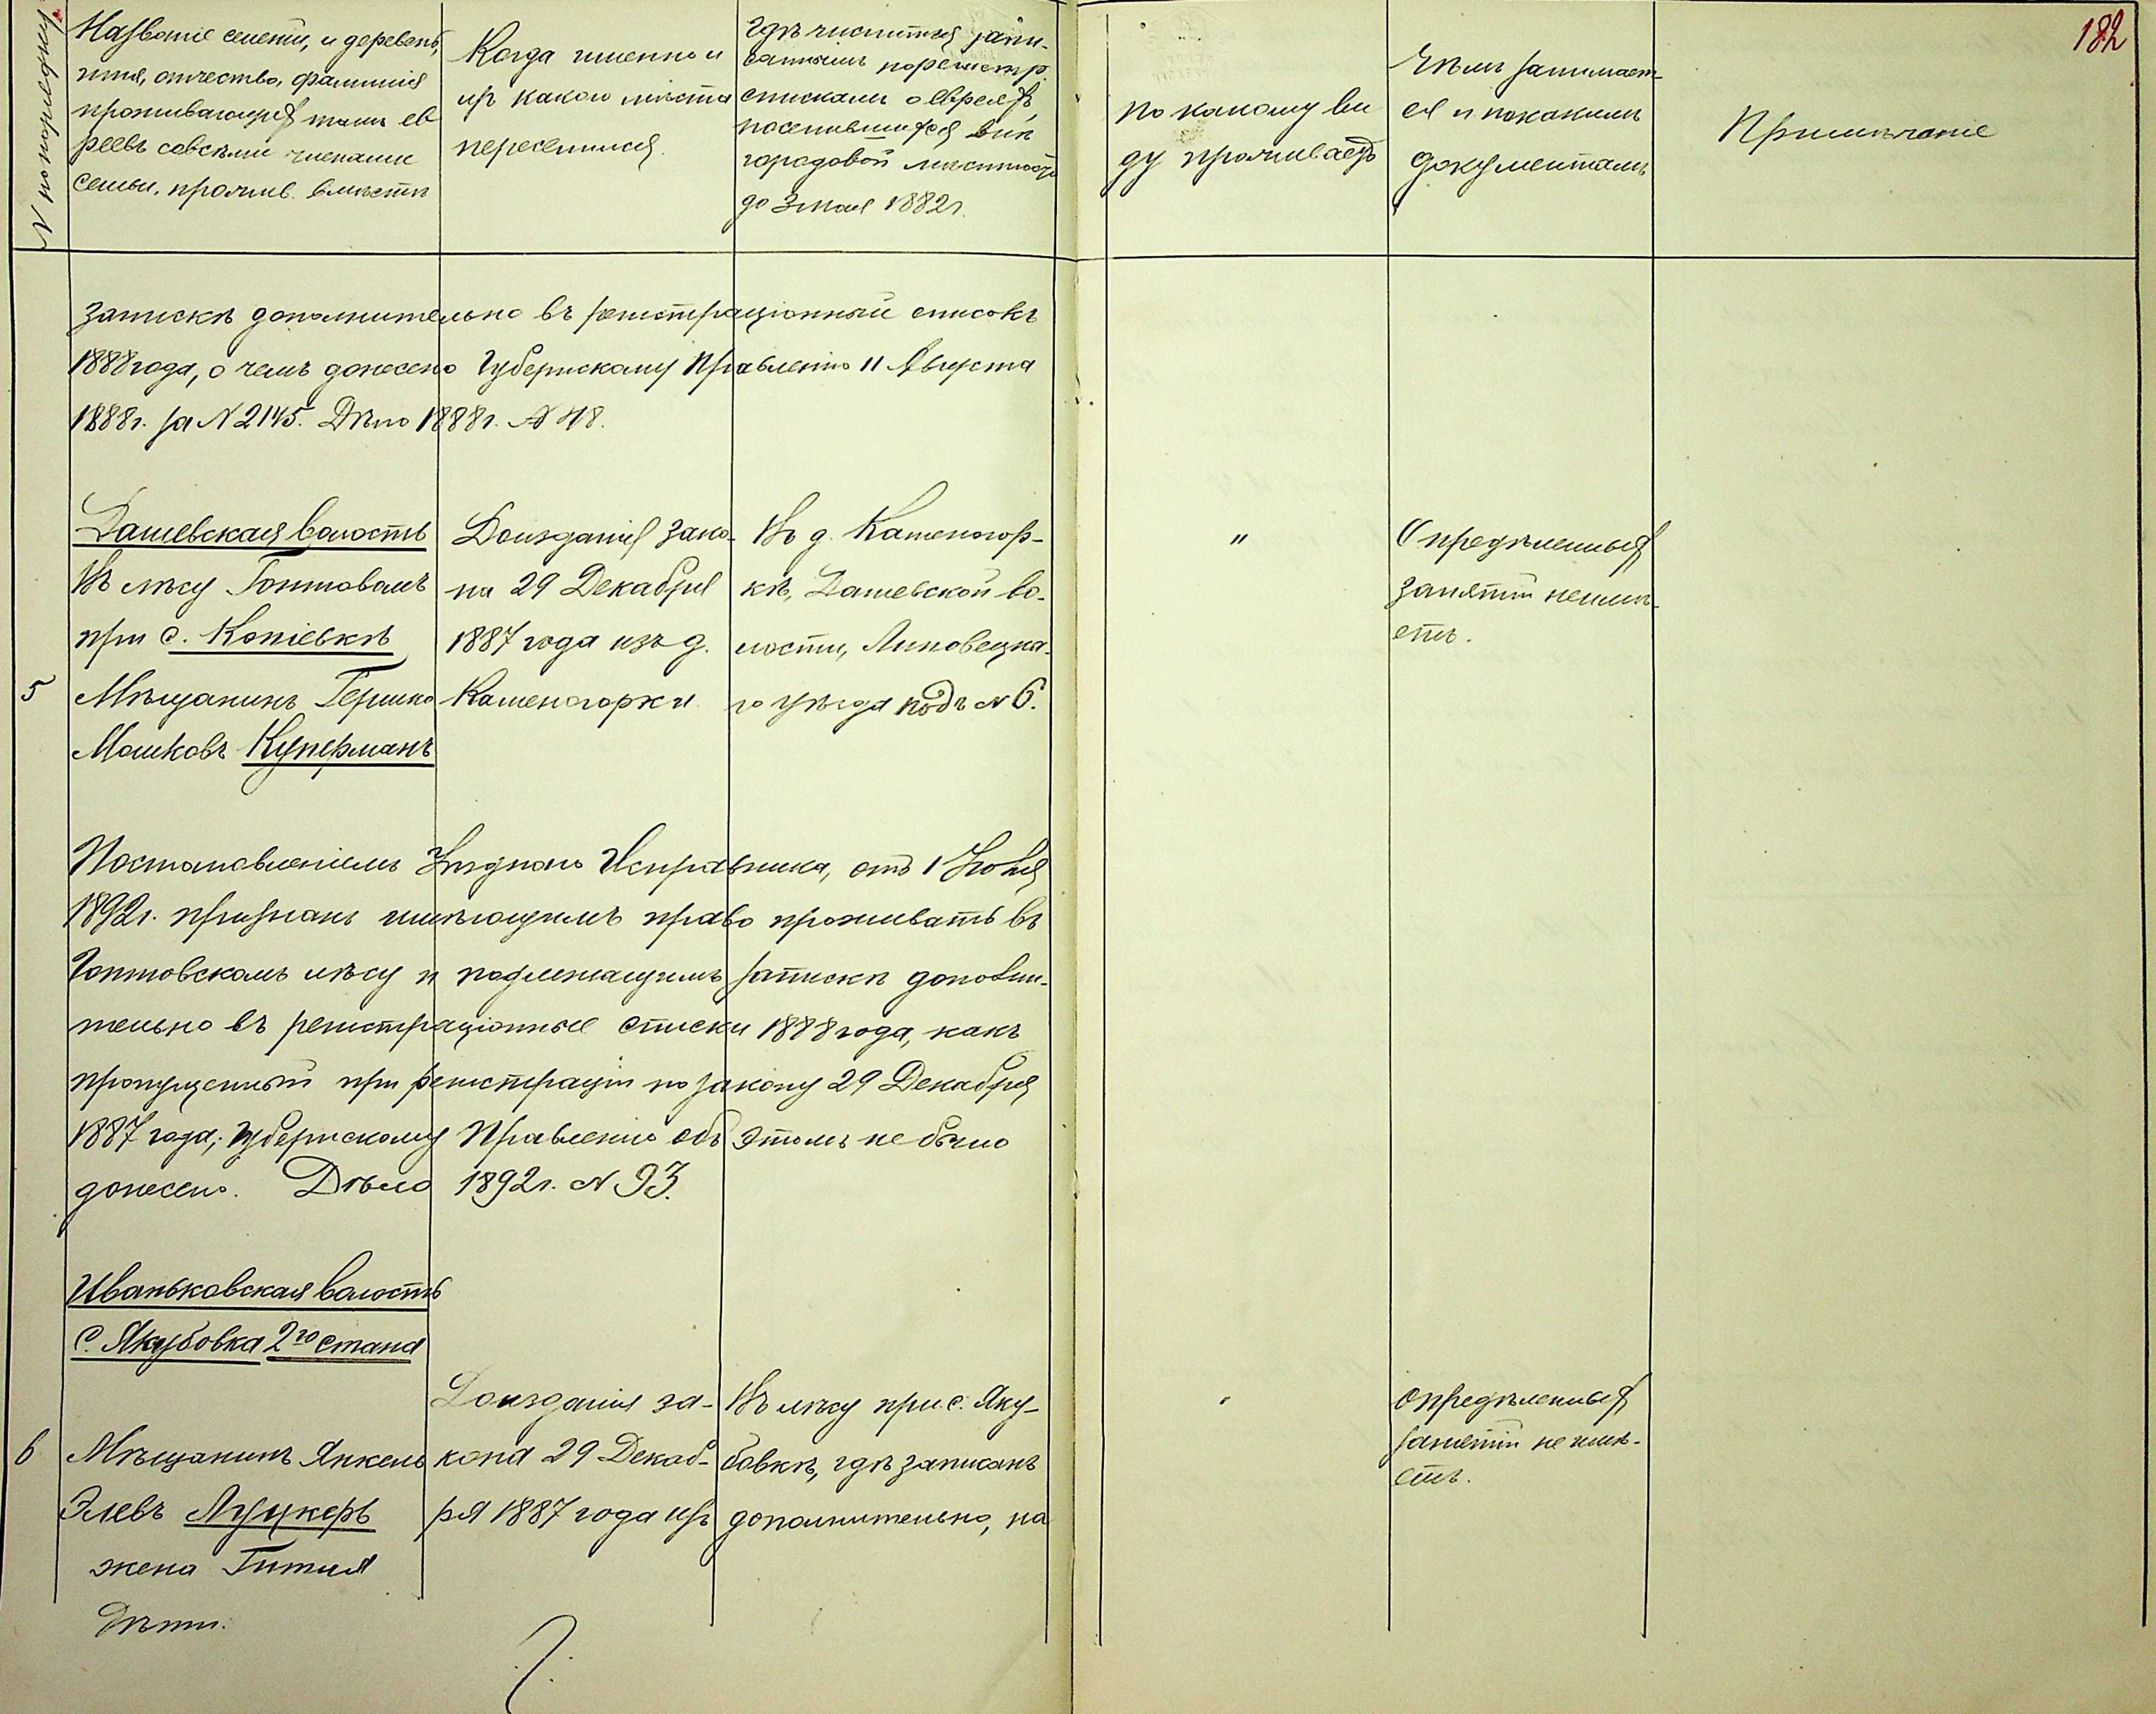 182
N по порядку
Названіе селеній, и деревень,
имя, отчество, фамилія
проживающихъ тамъ ев
реевъ совсѣми членами
семьи, прожив. вмѣстѣ
Когда именно и
изъ какого мѣста
переселился.
Гдѣ числится запи-
саннымъ порегистр.
спискамъ о евреяхъ
поселившихся внѣ
городовой мѣстности
до 3 мая 1882 г.
По какому ви
ду проживаетъ
Чѣмъ занимает-
ся и покакимъ
документамъ
Примѣчаніе
запискѣ дополнительно въ регистраціонный списокъ
1888 года, о чемъ донесено Губернскому Правленію 11 Августа
1888 г. за N 2145. Дѣло 1888 г. N 48.
Дашевская волость
Въ лѣсу Гонтовомъ
при с. Копіевкѣ
5 Мѣщанинъ Гершко
Мошковъ Куперманъ
Доизданія зако-
на 29 Декабря
1887 года изъ д.
Каменогорки
Въ д. Каменогор-
кѣ, Дашевской во-
лости, Липовецка-
го уѣзда подъ N 6.
"
Опредѣленныхъ
занятій неимѣ-
етъ.
Постановленіемъ Уѣзднаго Исправника, отъ 1 Июня
1892 г. признанъ имѣющимъ право проживать въ
Гонтовскомъ лѣсу и подлежащимъ запискѣ дополни-
тельно въ регистраціонные списки 1888 года, какъ
пропущенный при регистраціи по закону 29 Декабря
1887 года; Губернскому Правленію объ этомъ не было
донесено. Дѣло 1892 г. N 93.
Иваньковская волость
С. Якубовка 2го стана
6 Мѣщанинъ Янкель
Элевъ Луцкеръ
жена Гитля
Дѣти.
Доизданія за-
кона 29 Декаб-
ря 1887 года изъ
Въ лѣсу при с. Яку-
бовкѣ, гдѣ записанъ
дополнительно, на
"
Опредѣленныхъ
занятій не имѣ-
етъ.